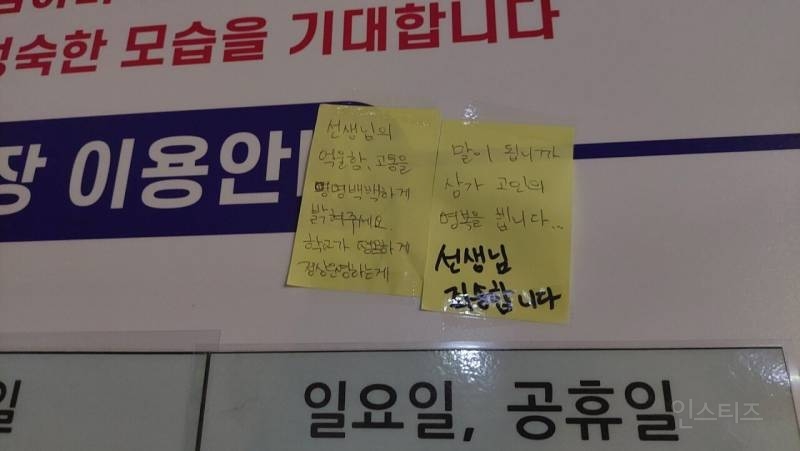 정숙한 모습을 기대합니다
장 이용안
선생님의
억울함, 고통을
명명백백하게
밝혀주세요.
학교가 조용하게
정상운영하는게
말이 됩니까
삼가 고인의
명복을 빕니다...
선생님
죄송합니다
일
일요일, 공휴일
인스티즈